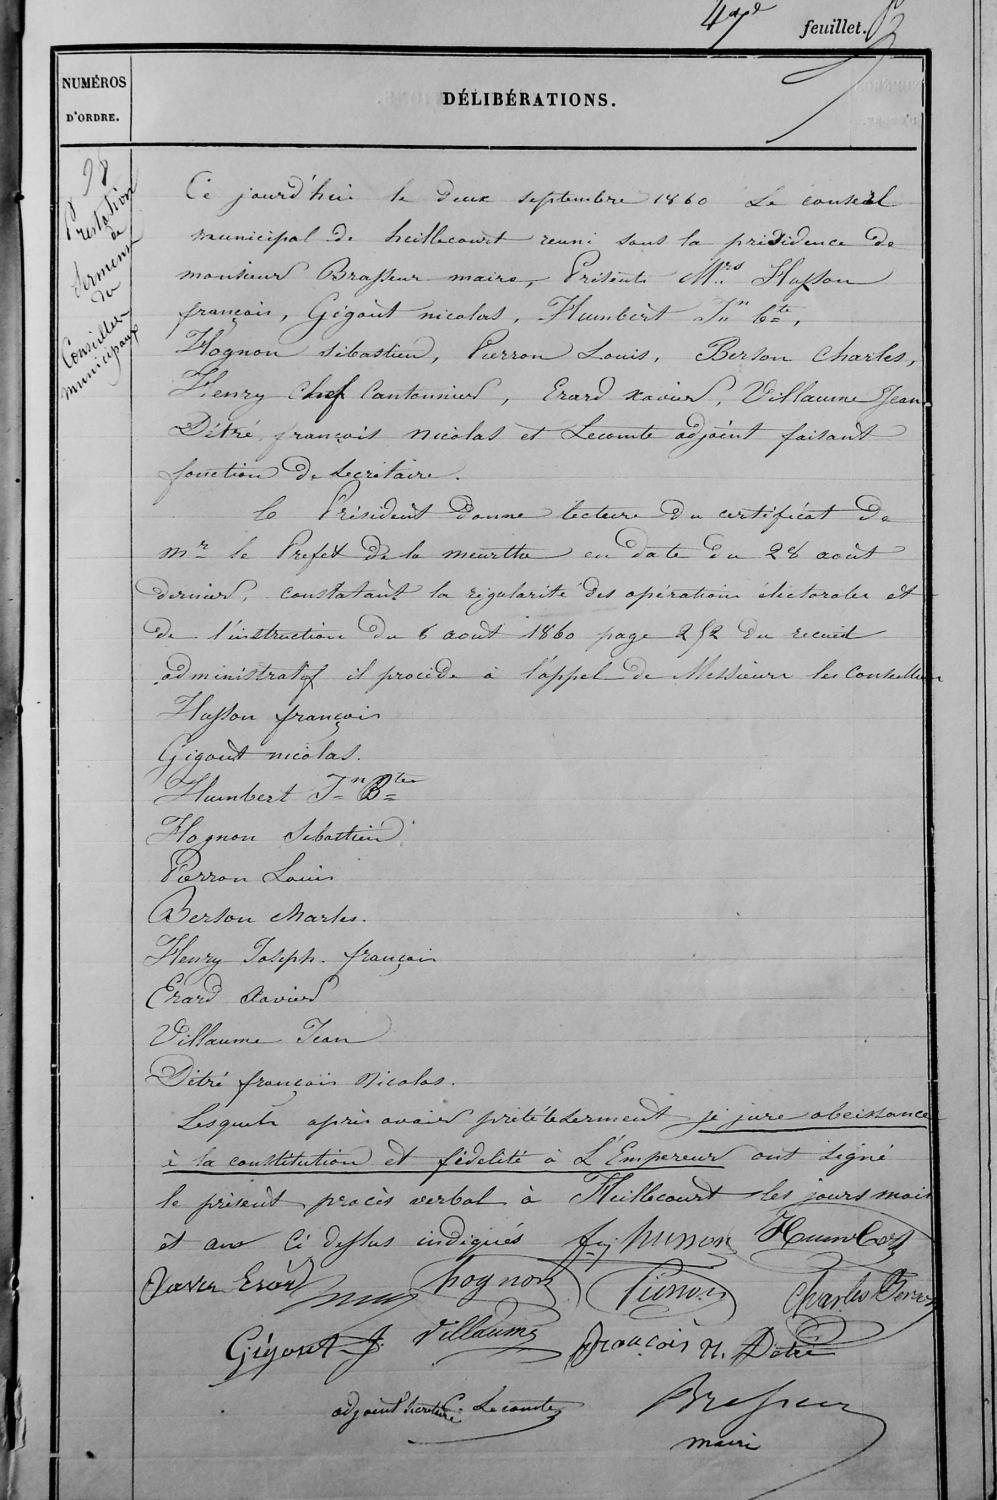 47e feuillet.
NUMÉROS
D'ORDRE.
DÉLIBÉRATIONS.
98
Prestation
de
serment
du
Conseiller
municipaux
Ce jourd'hui le deux septembre 1860 Le conseil
municipal de heillecourt reuni sous la présidence de
monsieur Brasseur maire, Présents Mrs Husson
françois, Gégout nicolas, Humbert Jn bte,
Hognon sébastien, Pierron Louis, Berson Charles,
Henry Chef Cantonnier, Erard xavier, Villaume Jean
Détré françois nicolas et Lecomte adjoint faisant
fonction de secrétaire.
Le Président donne lecture du certificat de
mr le Prefet de la meurthe en date du 28 août
dernier, constatant la régularité des opération électorales et
de l'instruction du 6 aout 1860 page 252 du recueil
administratif il procède à l'appel de Messieurs les Conseillers
Husson françois
Gigout nicolas.
Humbert Jn Bte
Hognon Sebastien
Pierron Louis
Berson charles.
Henry Joseph françois
Erard Xavier
Villaume Jean
Détré françois Nicolas.
Lesquels après avoir prêté le serment je jure obeissance
à la constitution et fidelité à L'Empereur ont signé
le présent procès verbal à Heillecourt les jours mois
et an Ci dessus indiqués fs husson Humbert
Xavier Erard hognon Pierron Charles Berson
Gégout J. Villaume françois N. Detré
adjoint secrétaire C. Lecomte Brasseur
maire